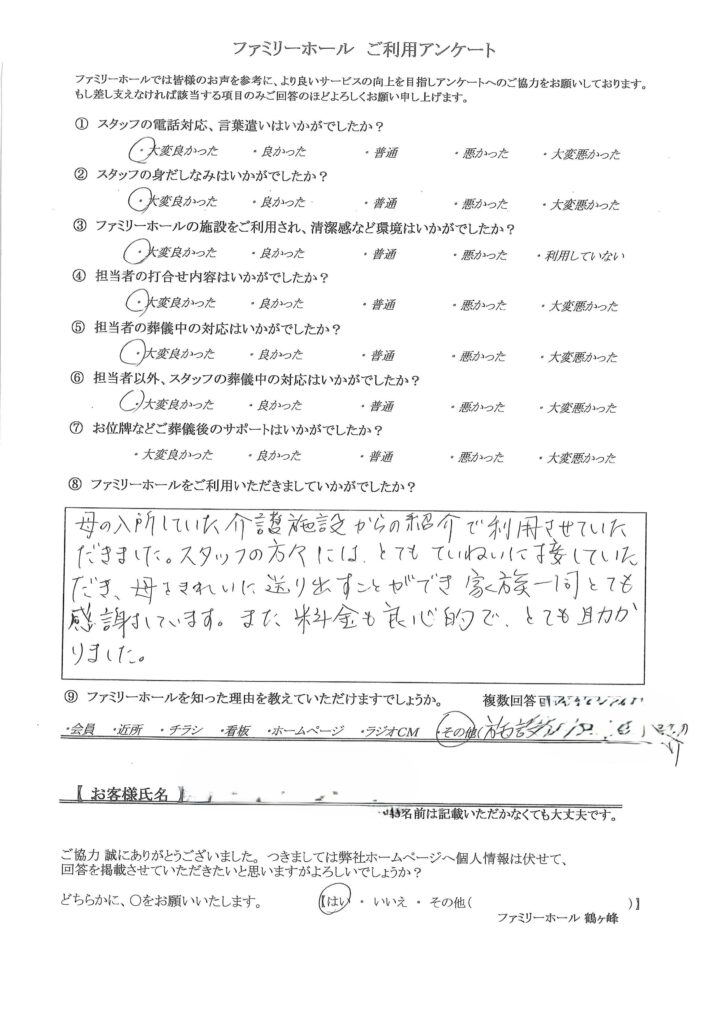 ファミリーホール ご利用アンケート
ファミリーホールでは皆様のお声を参考に、より良いサービスの向上を目指しアンケートへのご協力をお願いしております。
もし差し支えなければ該当する項目のみご回答のほどよろしくお願い申し上げます。
① スタッフの電話対応、言葉遣いはいかがでしたか？
・大変良かった ・良かった ・普通 ・悪かった ・大変悪かった
② スタッフの身だしなみはいかがでしたか？
・大変良かった ・良かった ・普通 ・悪かった ・大変悪かった
③ ファミリーホールの施設をご利用され、清潔感など環境はいかがでしたか？
・大変良かった ・良かった ・普通 ・悪かった ・利用していない
④ 担当者の打合せ内容はいかがでしたか？
・大変良かった ・良かった ・普通 ・悪かった ・大変悪かった
⑤ 担当者の葬儀中の対応はいかがでしたか？
・大変良かった ・良かった ・普通 ・悪かった ・大変悪かった
⑥ 担当者以外、スタッフの葬儀中の対応はいかがでしたか？
・大変良かった ・良かった ・普通 ・悪かった ・大変悪かった
⑦ お位牌などご葬儀後のサポートはいかがでしたか？
・大変良かった ・良かった ・普通 ・悪かった ・大変悪かった
⑧ ファミリーホールをご利用いただきましていかがでしたか？
母の入所していた介護施設からの紹介で利用させていた
だきました。スタッフの方々には、とてもていねいに接していた
だき、母もきれいに送り出すことができ家族一同とても
感謝しています。また料金も良心的で、とても助か
りました。
⑨ ファミリーホールを知った理由を教えていただけますでしょうか。 複数回答
・会員 ・近所 ・チラシ ・看板 ・ホームページ ・ラジオCM ・その他(施設
【 お客様氏名 】
名前は記載いただかなくても大丈夫です。
ご協力 誠にありがとうございました。つきましては弊社ホームページへ個人情報は伏せて、
回答を掲載させていただきたいと思いますがよろしいでしょうか？
どちらかに、○をお願いいたします。 【はい ・ いいえ ・ その他( )】
ファミリーホール 鶴ヶ峰